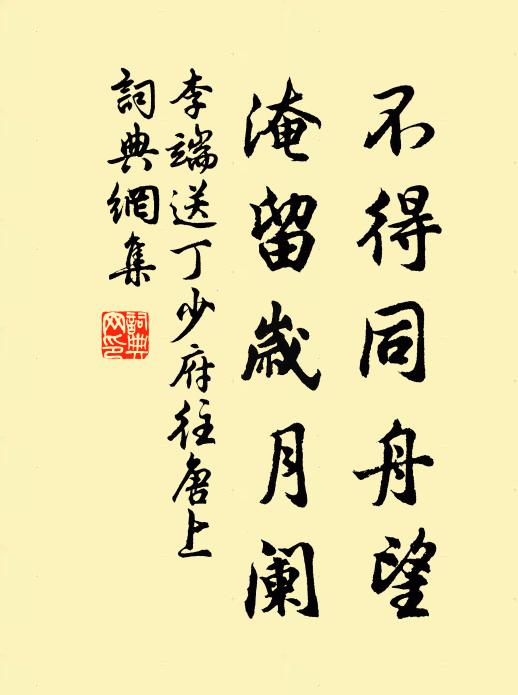 不得同舟望
淹留歲月阑
李端送丁少府往唐上
詞典網集
詞典网印